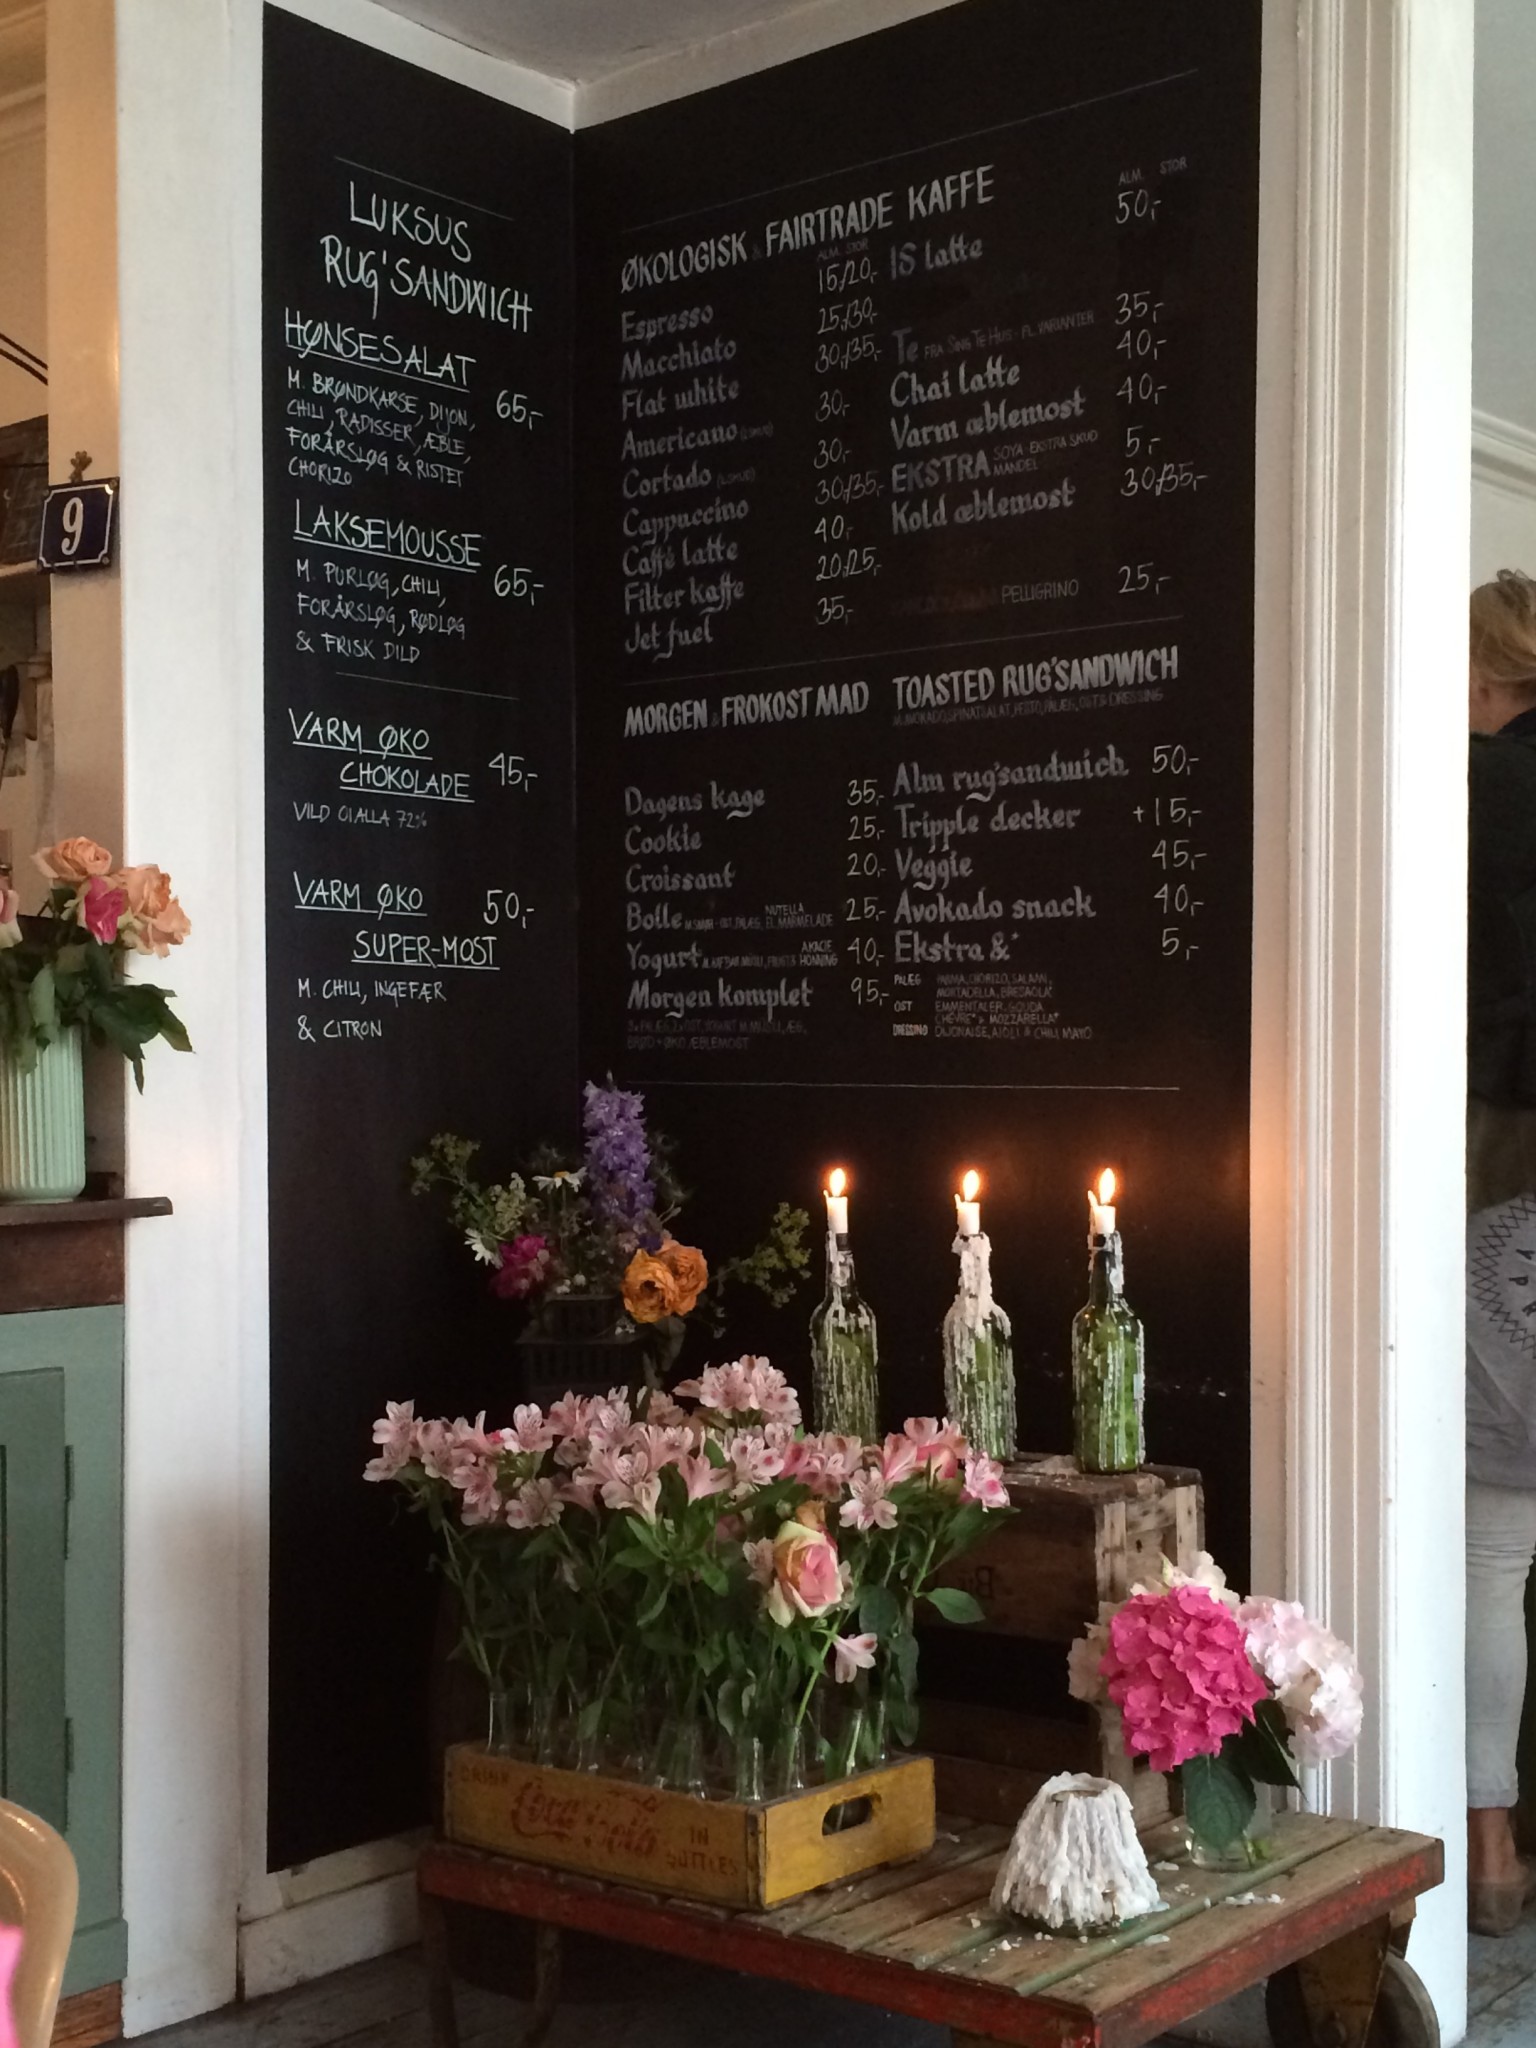 LUKSUS
RUG'SANDWICH
HØNSESALAT
M. BRØNDKARSE, DIJON,
CHILI, RADISSER, ÆBLE,
65,-
FORÅRSLØG & RISTET
CHORIZO
LAKSEMOUSSE
M. PURLØG, CHILI,
65,-
FORÅRSLØG, RØDLØG
& FRISK DILD
VARM ØKO
CHOKOLADE 45,-
VILD 72%
VARM ØKO 50,-
SUPER-MOST
M. CHILI, INGEFÆR
& CITRON
9
ØKOLOGISK & FAIRTRADE KAFFE
ALM. STOR
Espresso 15/20,-
Macchiato 25/30,-
Flat white 30/35,-
Americano 30,-
Cortado 30,-
Cappuccino 30/35,-
Caffé latte 40,-
Filter kaffe 20/25,-
Jet fuel 35,-
ALM. STOR
IS latte 50,-
Te FRA SING TE HUS - FL. VARIANTER 35,-
Chai latte 40,-
Varm æblemost 40,-
EKSTRA SOYA EKSTRA SKUD 5,-
MANDEL
Kold æblemost 30/35,-
PELLIGRINO 25,-
MORGEN & FROKOST MAD
Dagens kage 35,-
Cookie 25,-
Croissant 20,-
Bolle M. SMØR - OST, PÅLÆG, NUTELLA FL. MARMELADE 25,-
Yogurt MÜSLI, FRUGT & AKACIE HONNING 40,-
Morgen komplet 95,-
BRØD + ØKO ÆBLEMOST
TOASTED RUG'SANDWICH
M. AVOKADO, SPINATSALAT, PESTO, PÅLÆG, OST & DRESSING
Alm rug'sandwich 50,-
Tripple decker +15,-
Veggie 45,-
Avokado snack 40,-
Ekstra &* 5,-
PÅLÆG PARMA, CHORIZO, SALAMI,
MORTADELLA, BRESAOLA
OST EMMENTALER, GOUDA,
CHÉVRE* & MOZZARELLA*
DRESSING DIJONAISE, AIOLI & CHILI MAYO
DRINK
Coca-Cola
IN
BOTTLES